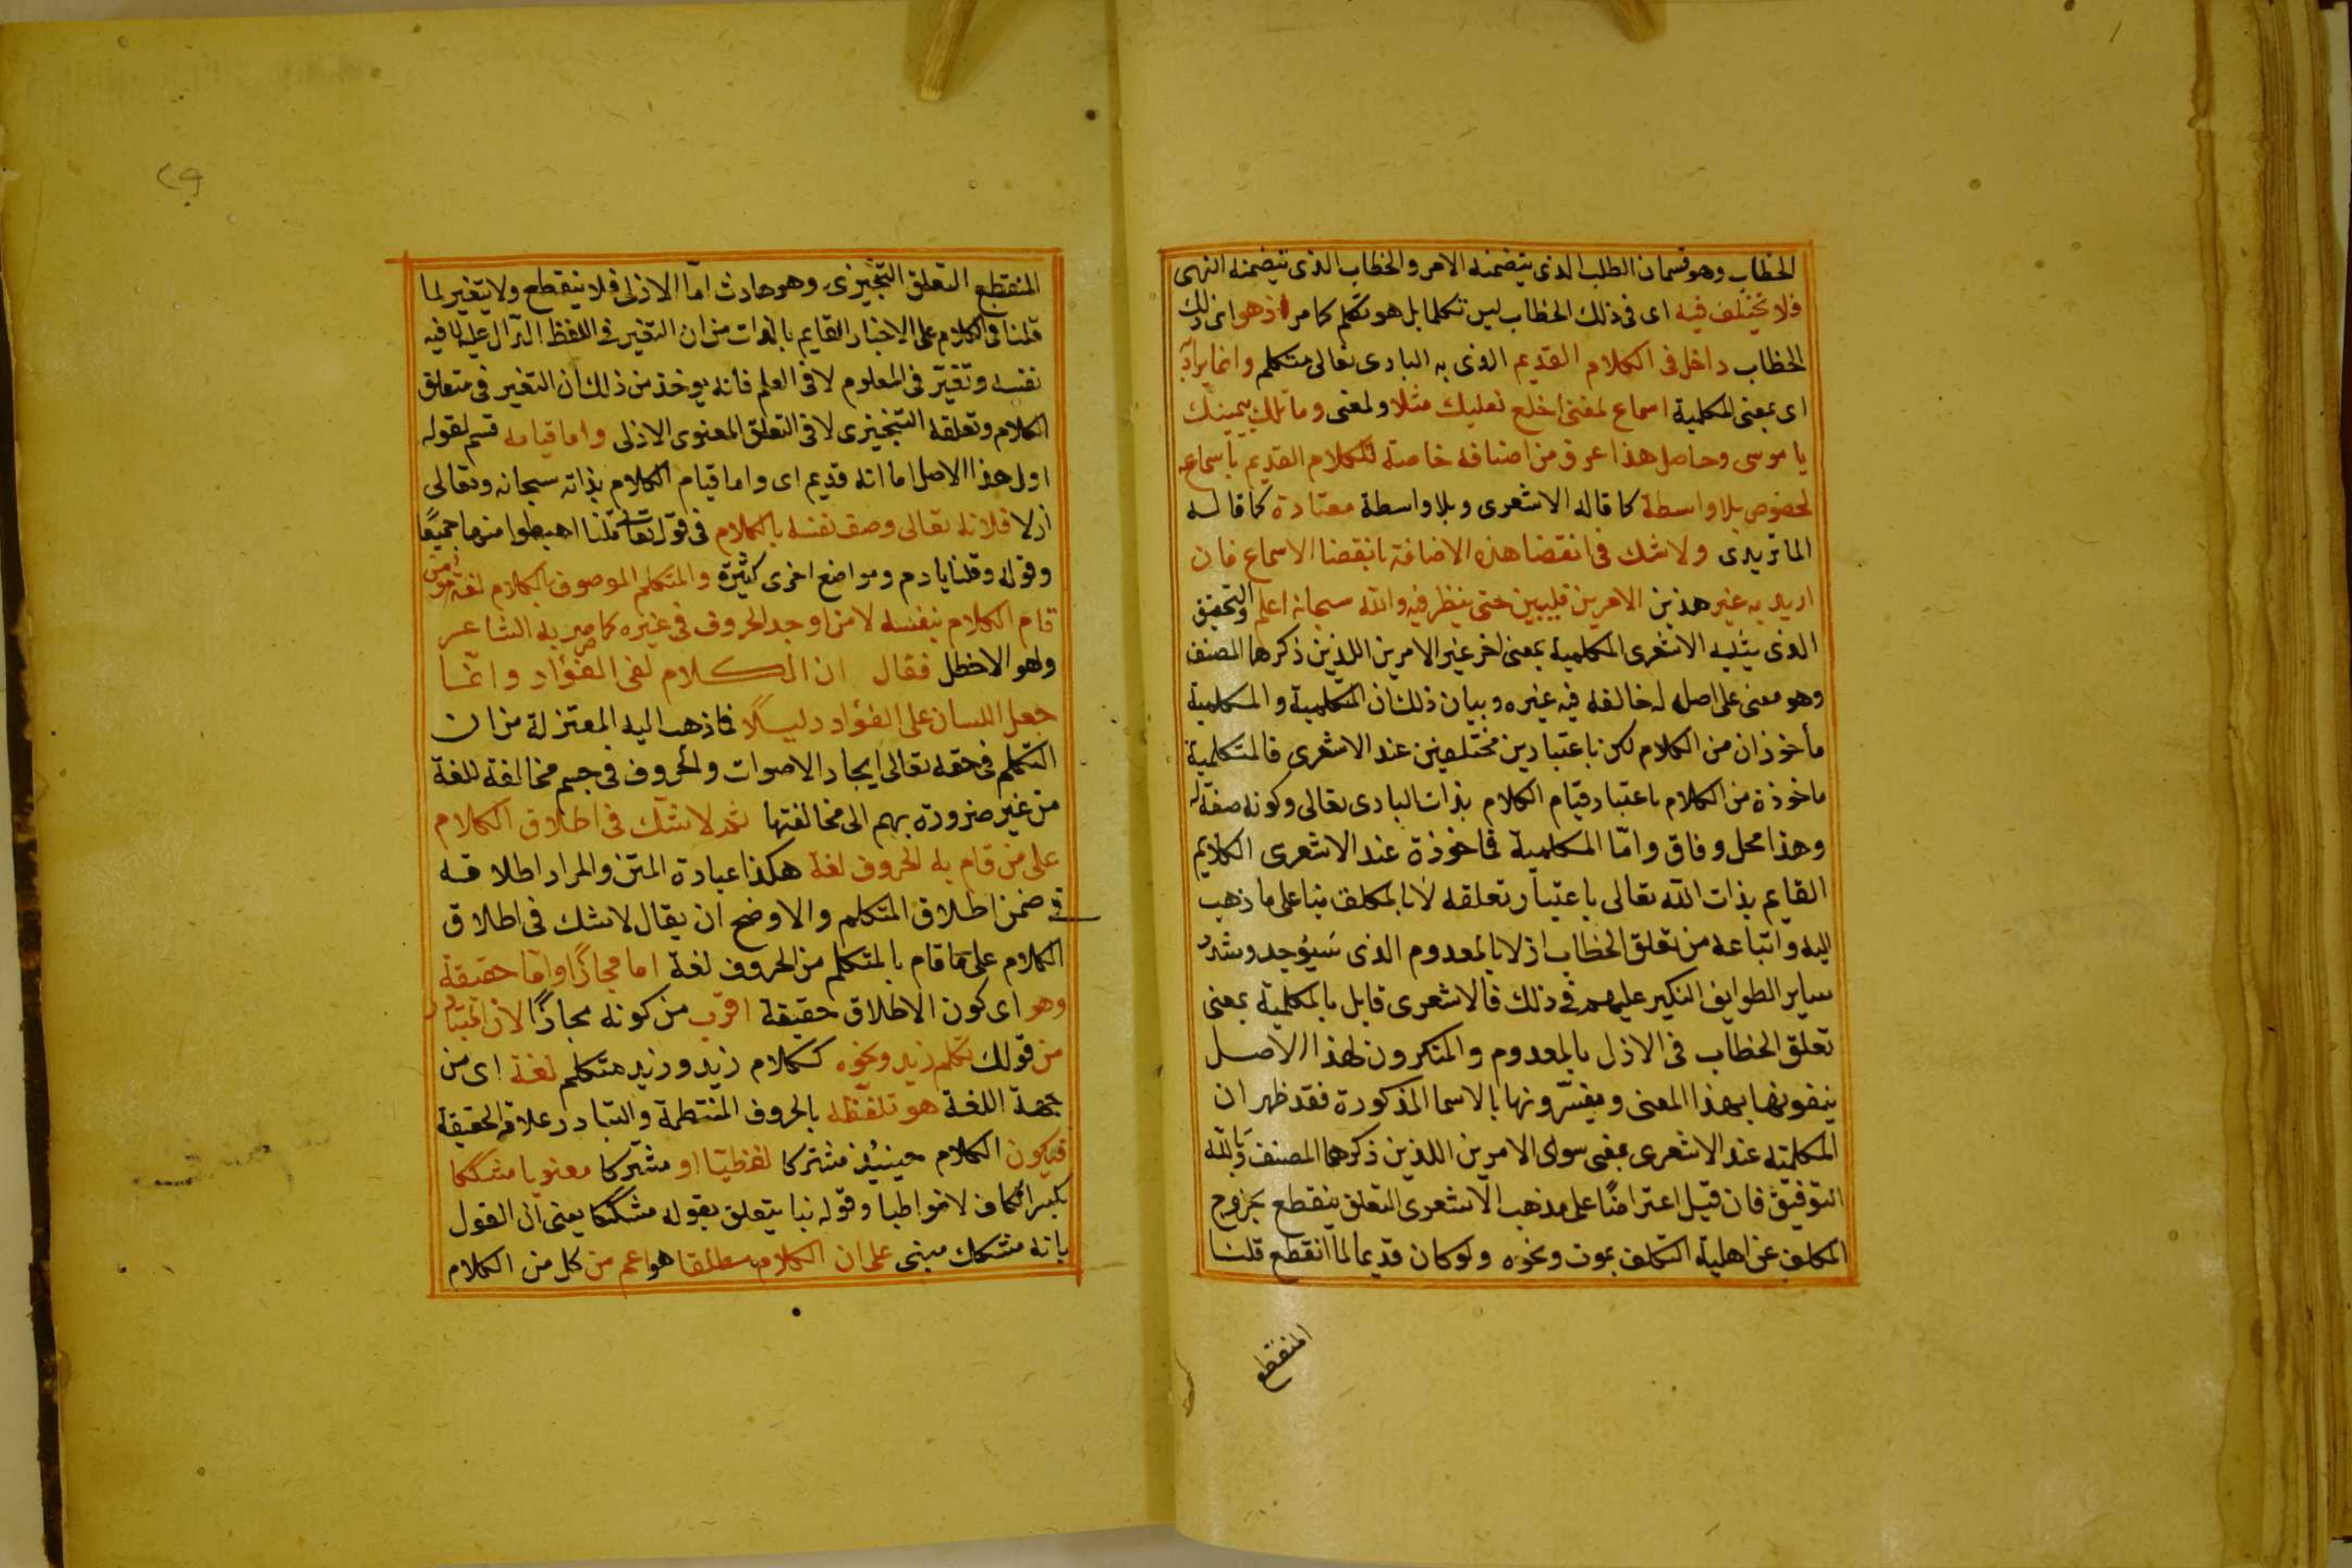 الخطاب وهو قسمان الطلب الذى يتضمنه الامر والخطاب الذى يتضمنه النهى
فلا يختلف فيه اى فى ذلك الخطاب ليس تكلما بل هو تكلم كما مر اذ هو اى ذلك
الخطاب داخل فى الكلام القديم الذى به البارى تعالى متكلم وانما يراد به
اى بمعنى المكلمية اسماع لمعنى اخلع نعليك مثلا ولمعنى وما تلك بيمينك
يا موسى وحاصل هذا عروض اضافة خاصة للكلام القديم باسماعه
لخصوص بلا واسطة كما قاله الاشعرى وبلا واسطة معتادة كما قاله
الماتريدى ولا شك فى انقضا هذه الاضافة بانقضا الاسماع فان
اريد به غير هذين الامرين فليبين حتى ينظر فيه والله سبحانه اعلم والتحقيق
الذى يثبته الاشعرى المكلمية بمعنى اخر غير الامرين اللذين ذكرهما المصنف
وهو معنى على اصل له خالفه فيه غيره وبيان ذلك ان المتكلمية والمكلمية
مأخوذان من الكلام لكن باعتبارين مختلفين عند الاشعرى فالمتكلمية
ماخوذة من الكلام باعتبار قيام الكلام بذات البارى تعالى وكونه صفة له
وهذا محل وفاق وامّا المكلمية فماخوذة عند الاشعرى الكلايم
القايم بذات الله تعالى باعتبار تعلقه لأنا بالمكلف بنا على ما ذهب
اليه واتباعه من تعلق الخطاب ازلا بالمعدوم الذى سَيُوجد وشدد
ساير الطوايف النكير عليهم فى ذلك فالاشعرى قايل بالمكلمية بمعنى
تعلق الخطاب فى الازل بالمعدوم والمنكرون لهذا الاصل
ينفونها بهذا المعنى ويفسّرونها بالاسما المذكورة فقد ظهر ان
المكلمته عند الاشعرى بمعنى سوى الامرين اللذين ذكرهما المصنف وبالله
التوفيق فان قيل اعتراضًا على مذهب الاشعرى التعلق ينقطع بخروج
المكلف عن اهلية التكلف بموت ونحوه ولو كان قديما لما انقطع قلنا
المنقطع
المنقطع التعلق التنجيزى وهو حادث امّا الازلى فلا ينقطع ولا يتغير لما
قلنا فى الكلام على الاخبار القايم بالذات من ان التغير فى اللفظ الدّال عليه لا فيه
نفسه وتغيّر فى المعلوم لا فى العلم فأنه يوخذ من ذلك أن التغير فى متعلق
الكلام وتعلقه التنجيزى لا فى التعلق المعنوى الازلى واما قيامه قسم لقوله
اول هذا الاصل اما انه قديم اى واما قيام الكلام بذاته سبحانه وتعالى
أزلا فلانه تعالى وصف نفسه بالكلام فى قوله تعالى قلنا اهبطوا منها جميعًا
وقوله وقلنا يادم ومواضع اخرى كثيرة والمتكلم الموصوف بالكلام لغة هو من
قام الكلام بنفسه لا من اوجد الحروف فى غيره كما صرح به الشاعر
وهو الاخطل فقال ان الكلام لفى الفؤاد وانّما
جعل اللسان على الفؤاد دليلًا فما ذهب اليه المعتزلة من ان
التكلم فى حقه تعالى ايجاد الاصوات والحروف فى جسم مخالفة للغة
من غير ضرورة بهم الى مخالفتها ثم لا شك فى اطلاق الكلام
على من قام به الحروف لغة هكذا عبارة المتن والمراد اطلاقه
فى ضمن اطلاق المتكلم والاوضح أن يقال لا شك فى اطلاق
الكلام على ما قام بالمتكلم من الحروف لغة اما مجازًا وامّا حقيقة
وهو اى كون الاطلاق حقيقة اقرب من كونه مجازًا لان المتبادر
من قولك تكلم زيد ونحوه ككلام زيد وزيد متكلم لغة اى من
جهة اللغة هو تلفظه بالحروف المنتظمة والتبادر علامة الحقيقة
فيكون الكلام حينيُذ مشتركا لفظيّا او مشتركا معنويا مشككا
بكسر الكاف لا متواطيا وقوله بنا يتعلق بقوله مشككا يعنى ان القول
بانه مشكك مبنى على ان الكلام مطلقا هو اعم من كل من الكلام